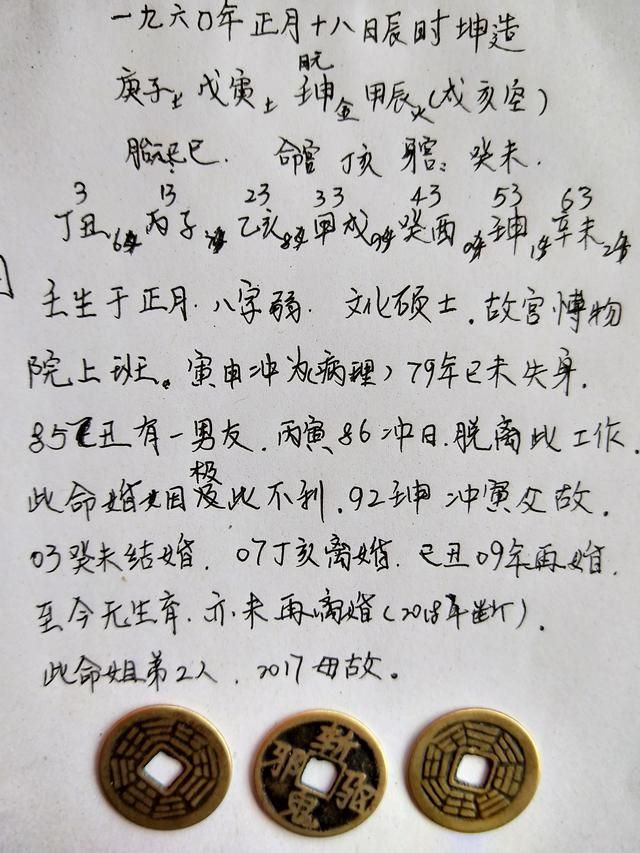 一九六0年正月十八日辰时坤造
脱
庚子土 戊寅土 壬申金 甲辰火(戌亥空)
胎元己巳. 命宫丁亥 身宫:癸未.
3 13 23 33 43 53 63
丁丑 丙子 乙亥 甲戌 癸酉 壬申 辛未
壬生于正月.八字弱. 文化硕士.故宫博物
院上班。寅申冲为(病理)79年己未失身.
85乙丑有一男友.丙寅86冲日.脱离此工作.
此命婚姻极此不利.92壬申冲寅父故.
03癸未结婚.07丁亥离婚.己丑09年再婚.
至今无生育.亦未再离婚(2018年断).
此命姐弟2人.2017母故。
斩 驱 鬼 邪